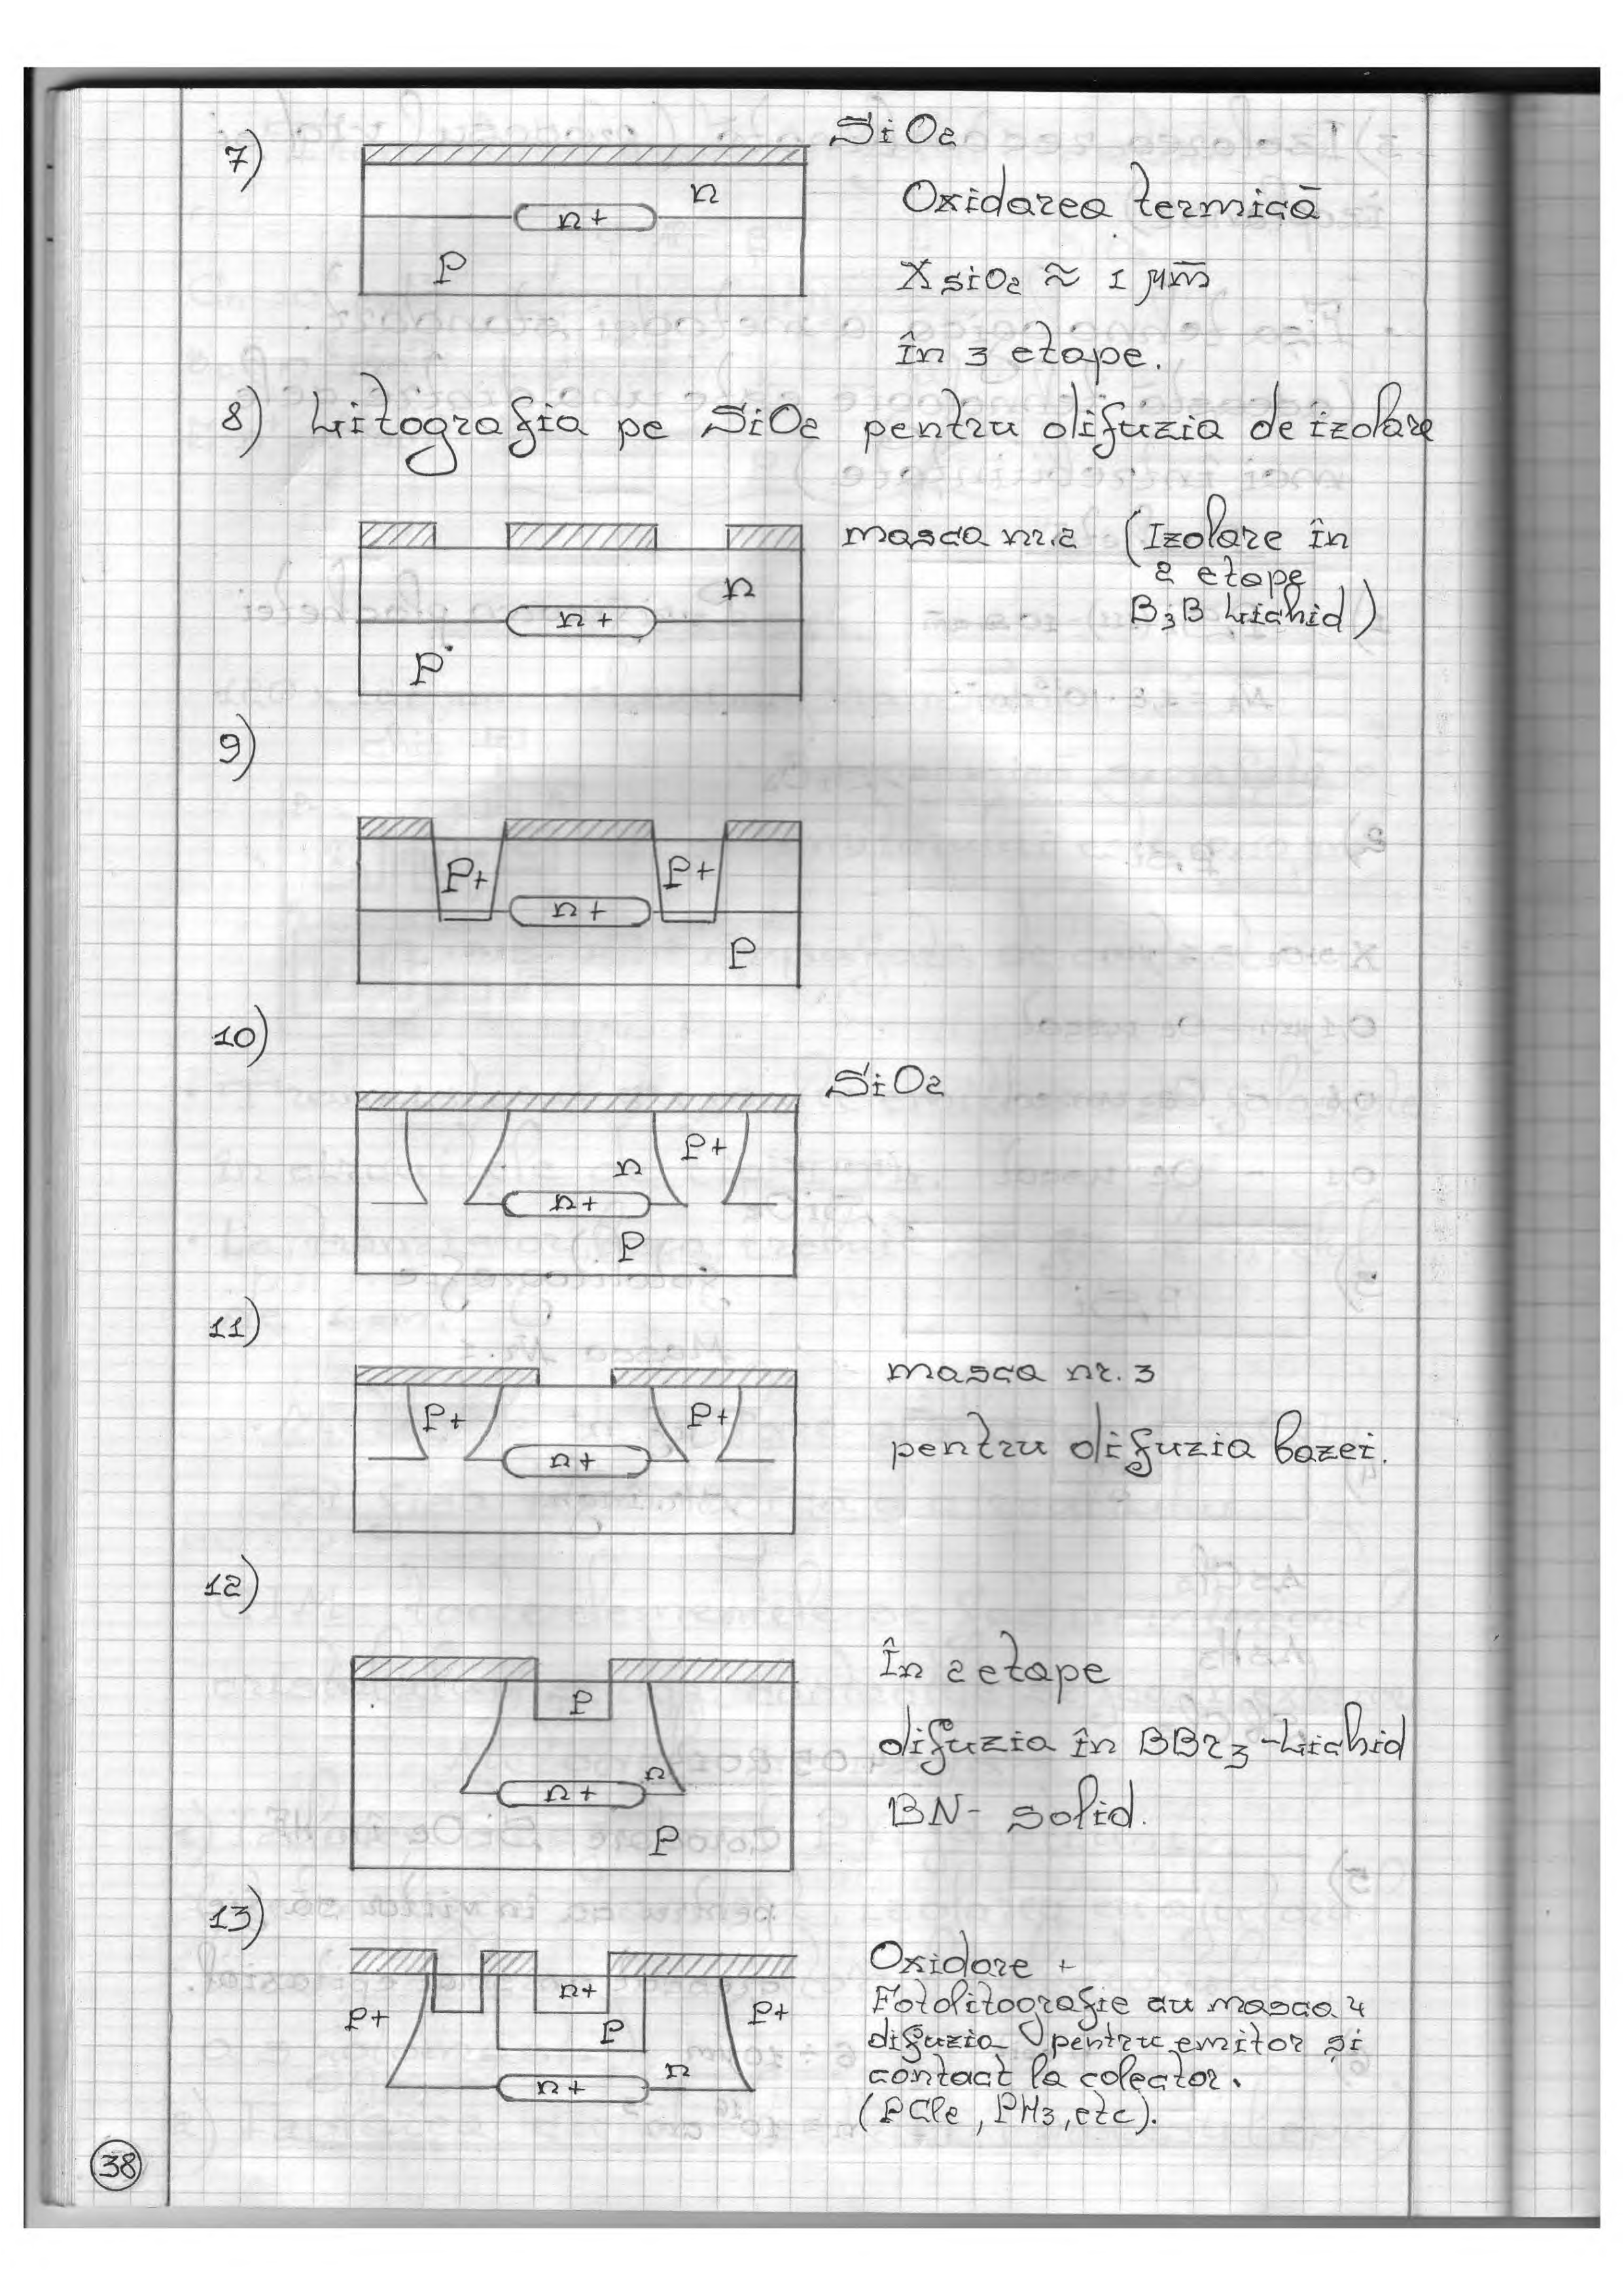 7)
SiO2
n
n+
P
Oxidarea termică
XSiO2 ≈ 1 μm
În 3 etape.
8) Litografia pe SiO2 pentru difuzia de izolare
masca nr.2 (Izolare în
2 etape
B3B Lichid)
n
n+
P
9)
P+ P+
n+
P
10)
SiO2
P+
n
n+
P
11)
P+ P+
n+
masca nr. 3
pentru difuzia bazei.
12)
P
n
n+
P
În 2 etape
difuzia în BBr3 - Lichid
BN - solid.
13)
n+
P+ P+
P
n
n+
Oxidare +
Fotolitografie cu masca 4
difuzia pentru emitor și
contact la colector.
(PCle, PH3, etc).
38